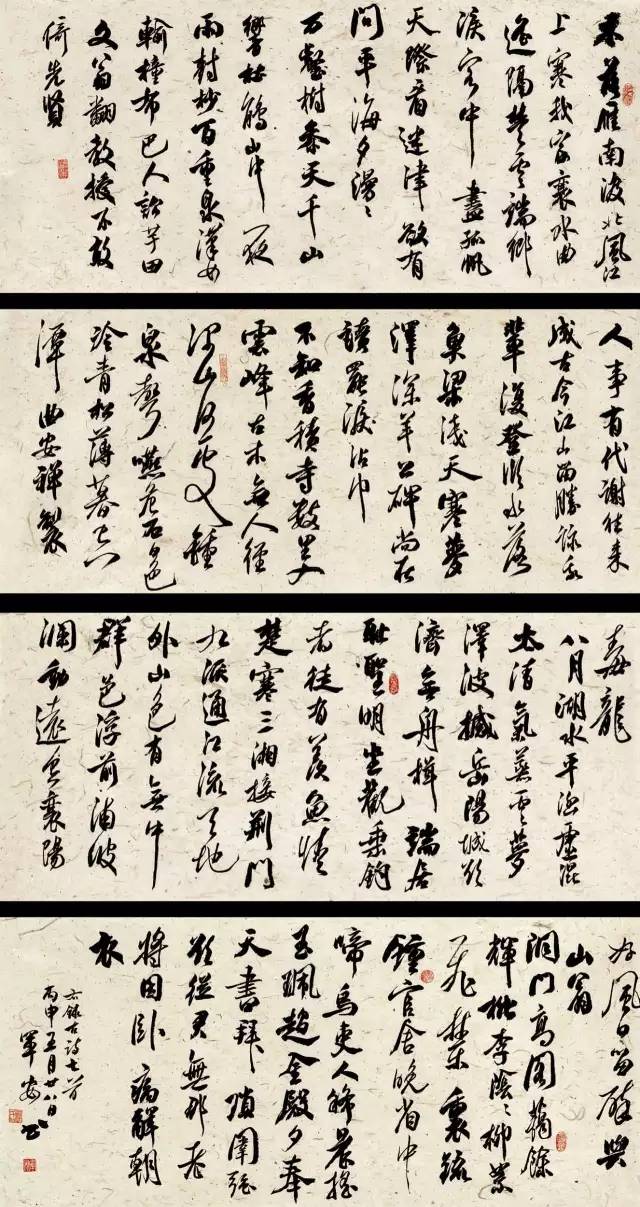 木落雁南渡北風江
上寒我家襄水曲
遙隔楚雲端鄉
淚客中盡孤帆
天際看迷津欲有
問平海夕漫〻
万壑樹參天千山
響杜鵑山中一夜
雨樹杪百重泉漢女
輸橦布巴人訟芋田
文翁翻教授不敢
倚先賢
人事有代謝往來
成古今江山留勝跡我
輩復登臨水落
魚梁淺天寒夢
澤深羊公碑尚在
讀罷淚沾巾
不知香積寺數里入
雲峰古木無人徑
深山何處鐘
泉聲咽危石日色
冷青松薄暮空
潭曲安禪製
毒龍
八月湖水平涵虛混
太清氣蒸雲夢
澤波撼岳陽城欲
濟無舟楫端居
恥聖明坐觀垂釣
者徒有羨魚情
楚塞三湘接荊門
九派通江流天地
外山色有無中
郡邑浮前浦波
瀾動遠空襄陽
好風日留醉與
山翁
洞門高閣靄餘
輝桃李陰〻柳絮
飛禁裏疏
鐘官舍晚省中
啼鳥吏人稀晨搖
玉珮趨金殿夕奉
天書拜瑣闈強
欲從君無那老
將因臥病解朝
衣
右錄古詩七首
丙申五月廿八日
軍安书